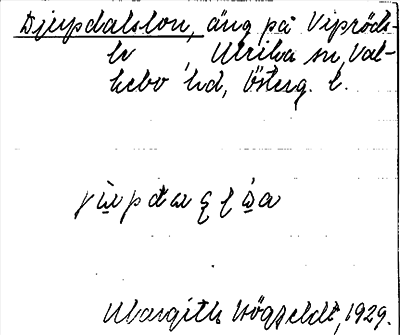 Djupdalslon, äng på Vipröds-
lv , Ulrika sn, Val-
kebo hd, Österg. l.
Margith Högfeldt, 1929.